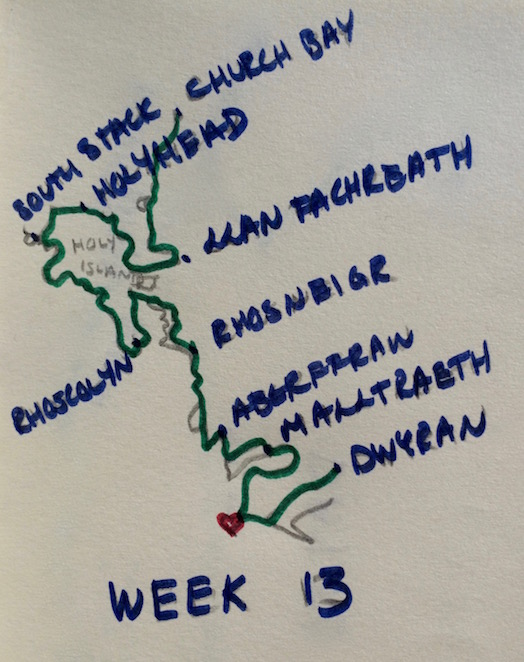 CHURCH BAY
SOUTH STACK
HOLYHEAD
LLANFACHREATH
HOLY
ISLAND
RHOSNEIGR
RHOSCOLYN
ABERFFRAW
MALLTRAETH
DWYRAN
WEEK 13